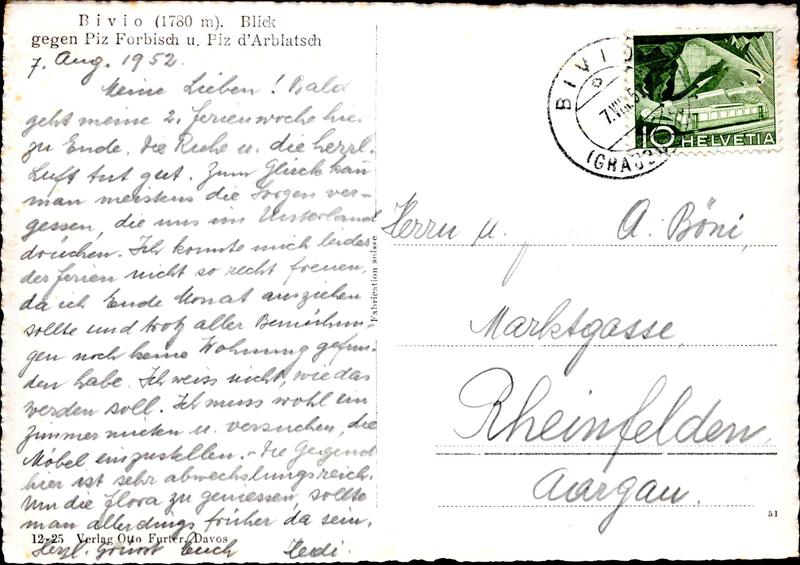 Bivio (1780 m). Blick
gegen Piz Forbisch u. Piz d'Arblatsch
7. Aug. 1952.
Meine Lieben! Bald
geht meine 2. Ferienwoche hie-
zu Ende. Die Ruhe u. die herrl.
Luft tut gut. Zum Glück kan
man meistens die Sorgen ver-
gessen, die uns im Unterland
drücken. Ich konnte mich leider
der Ferien nicht so recht freuen,
da ich Ende Monat ausziehen
sollte und trotz aller Bemühun-
gen noch keine Wohnung gefun-
den habe. Ich weiss nicht, wie das
werden soll. Ich muss wohl ein
Zimmer mieten u. versuchen, die
Möbel einzustellen. - Die Gegend
hier ist sehr abwechslungsreich.
Um die Flora zu geniessen, sollte
man allerdings früher da sein.
12-25 Verlag Otto Furter, Davos
Herzl. grüsst Euch Hedi.
Fabrication suisse
BIVIO
7.VIII.52
(GRAUB
10 HELVETIA
Herrn u. A. Böni,
Marktgasse,
Rheinfelden,
Aargau.
51